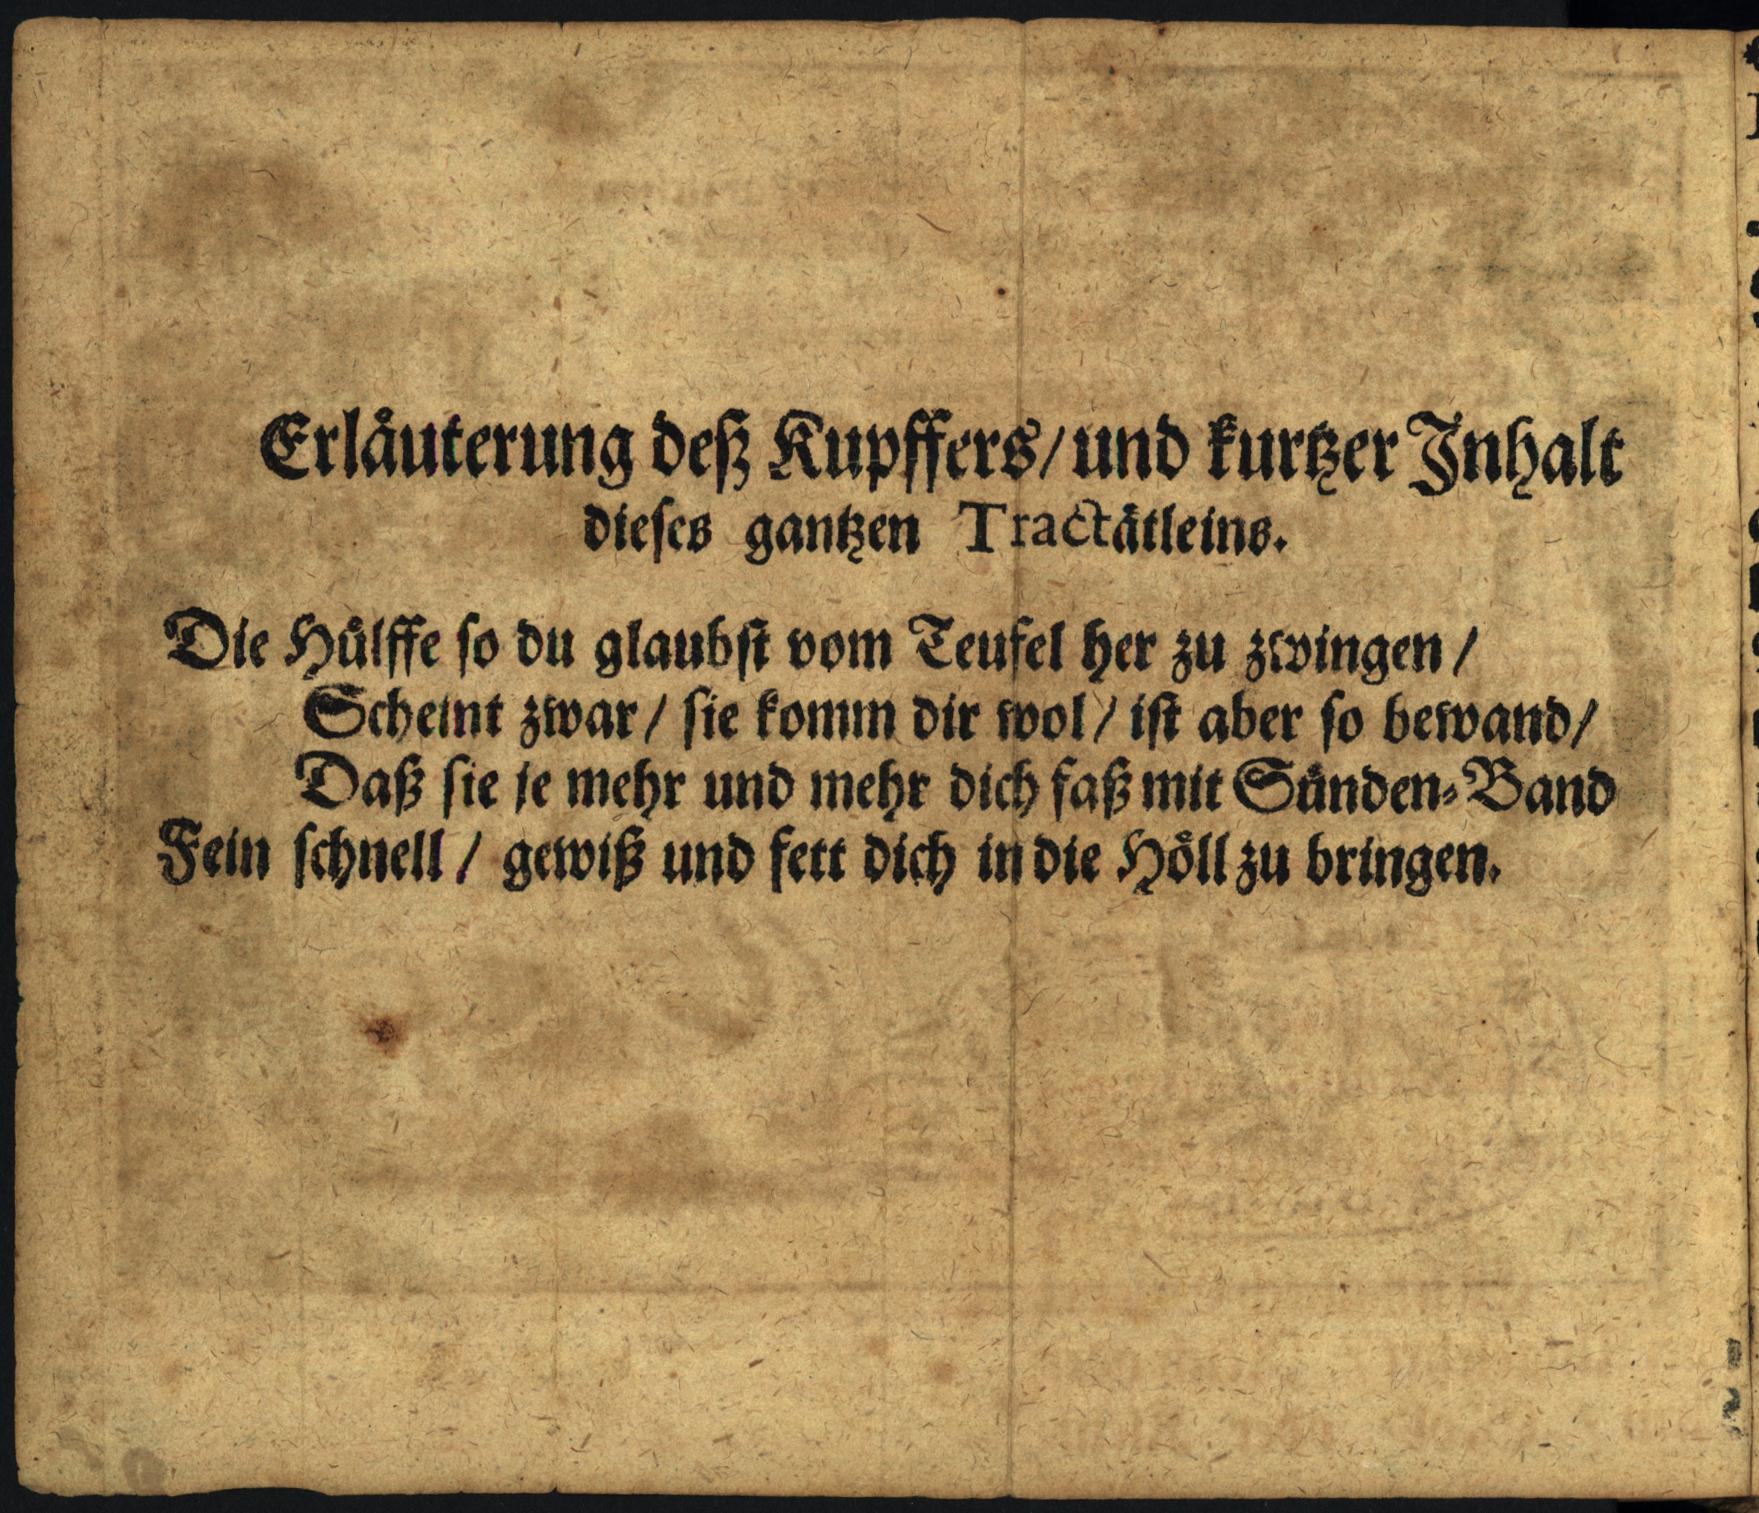 Erläuterung deß Kupffers/ und kurtzer Inhalt
dieses gantzen Tractätleins.
Die Hülffe so du glaubst vom Teufel her zu zwingen /
Scheint zwar / sie komm dir wol / ist aber so bewand /
Daß sie je mehr und mehr dich faß mit Sünden-Band
Fein schnell / gewiß und fett dich in die Höll zu bringen.